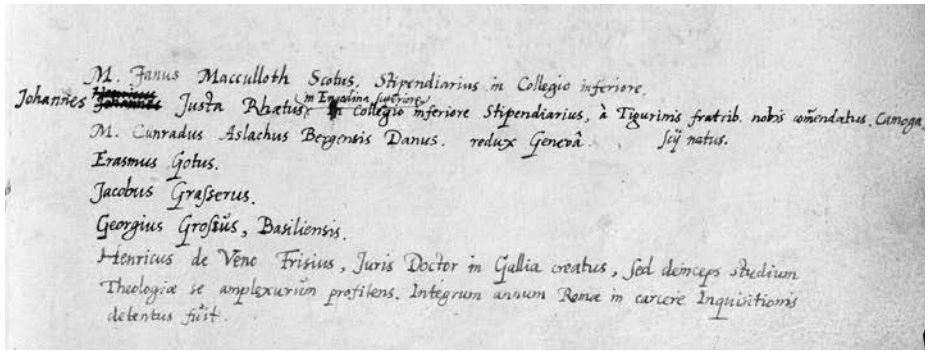 M. Janus Macculloth Scotus. Stipendiarius in Collegio inferiore.
Johannes Justa Rhætus (in Engadina superiore) in Collegio inferiore Stipendiarius, à Tigurinis fratrib. nobis com̃endatus. Camoga
M. Cunradus Aslachus Bergensis Danus. redux Genevâ. scij natus.
Erasmus Gotus.
Jacobus Grasserus.
Georgius Grossus, Basiliensis.
Henricus de Veno Frisius, Juris Doctor in Gallia creatus, sed deinceps studium
Theologiæ se amplexurum profitens. Integrum annum Romæ in carcere Inquisitionis
detentus fuit.